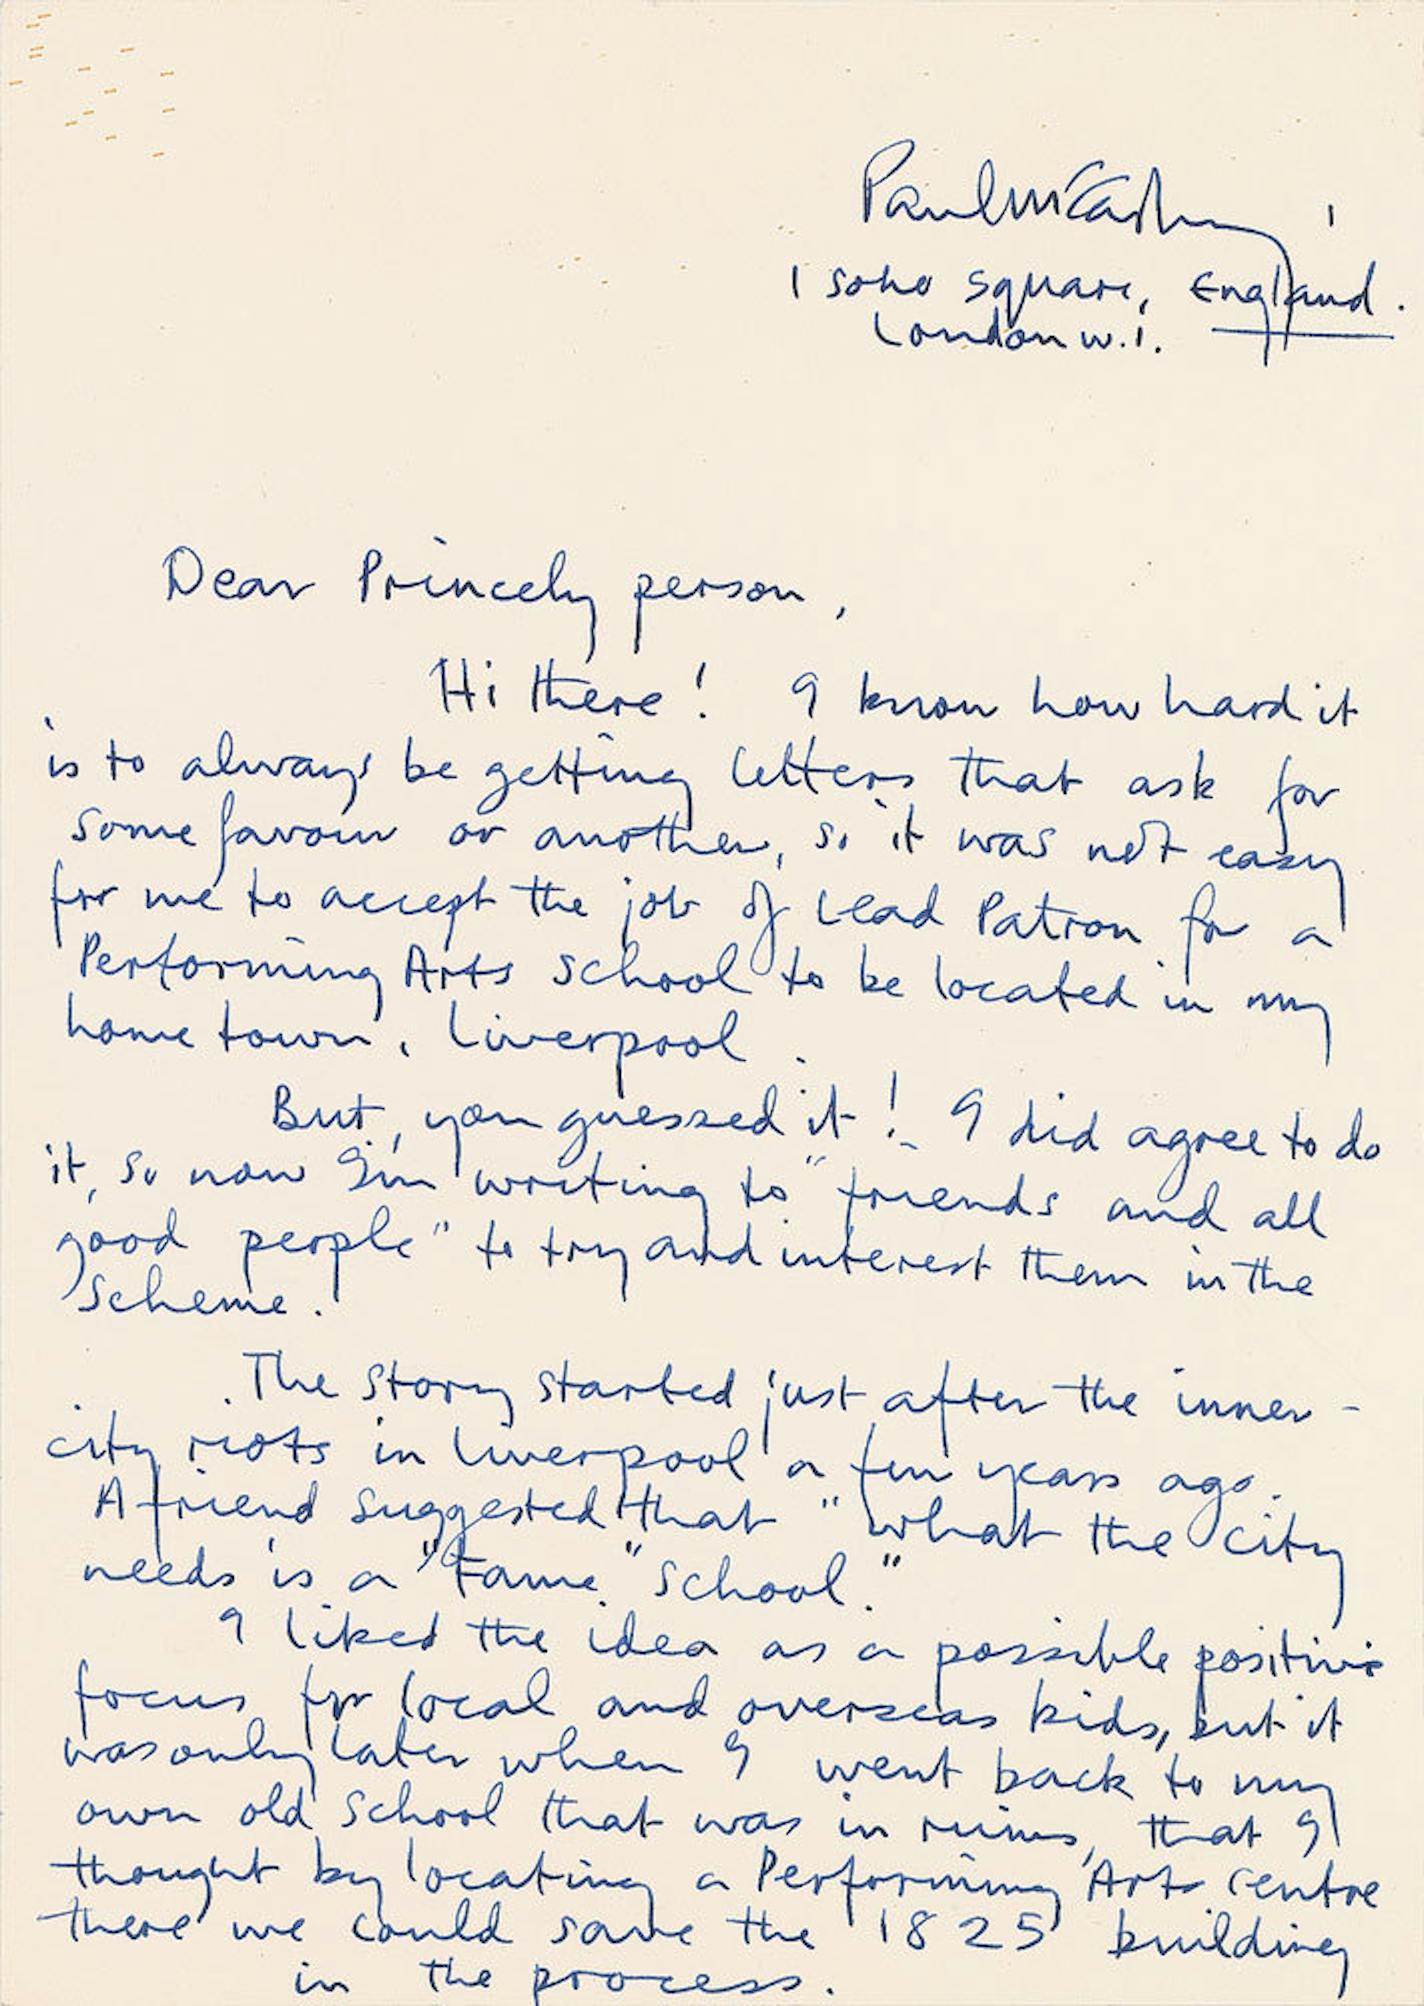 Paul McCartney
1 Soho Square, England.
London W.1.
Dear Princely person,
Hi there! I know how hard it
is to always be getting letters that ask for
some favour or another, so it was not easy
for me to accept the job of Lead Patron for a
Performing Arts School to be located in my
home town, Liverpool.
But, you guessed it! I did agree to do
it, so now I'm writing to "friends and all
good people" to try and interest them in the
scheme.
The story started just after the inner-
city riots in Liverpool a few years ago.
A friend suggested that "what the city
needs is a "Fame" School."
I liked the idea as a possible positive
focus for local and overseas kids, but it
was only later when I went back to my
own old school that was in ruins, that I
thought by locating a Performing Arts Centre
there we could save the 1825 building
in the process.